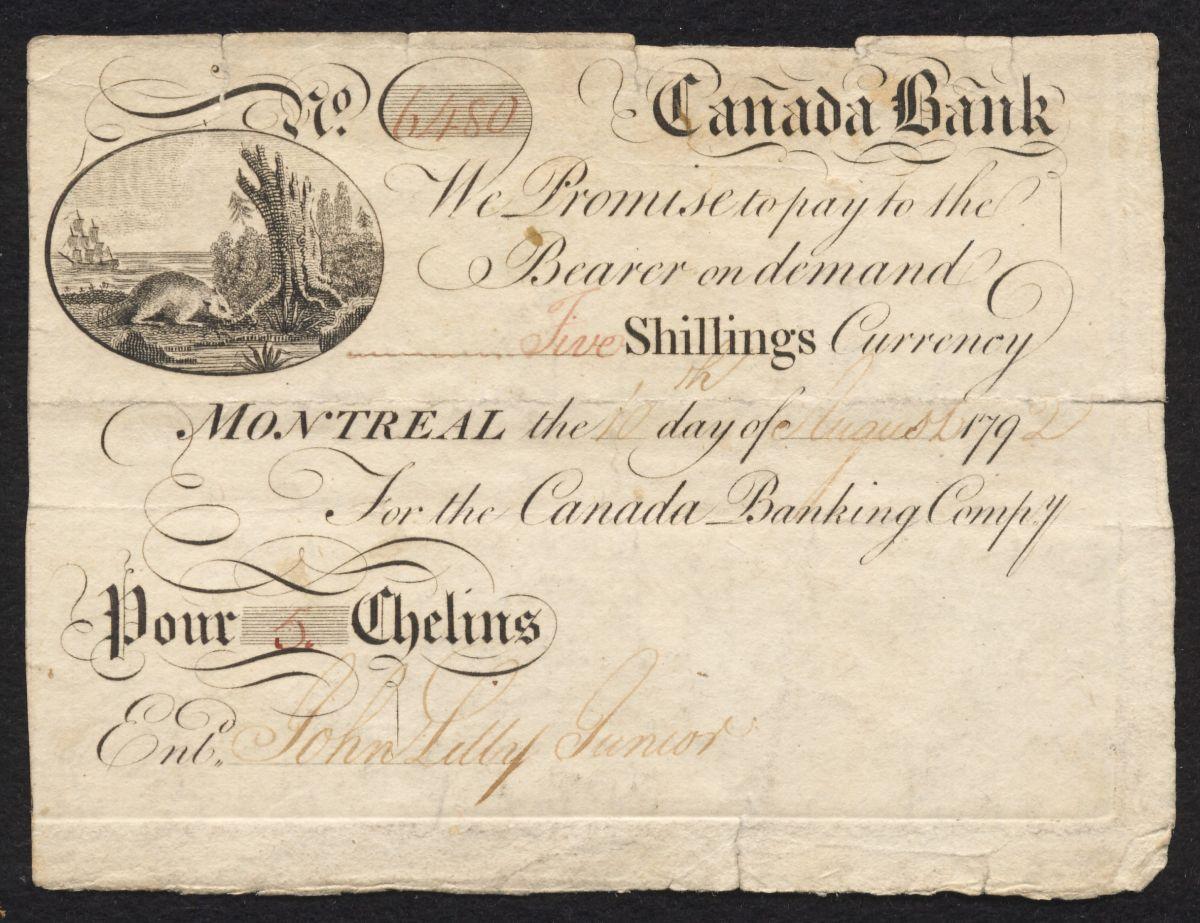 No. 6480 Canada Bank
We Promise to pay to the
Bearer on demand
Five Shillings Currency
MONTREAL the 10th day of August 1792
For the Canada Banking Compy
Pour 5. Chelins
Entd. John Lilly Junior